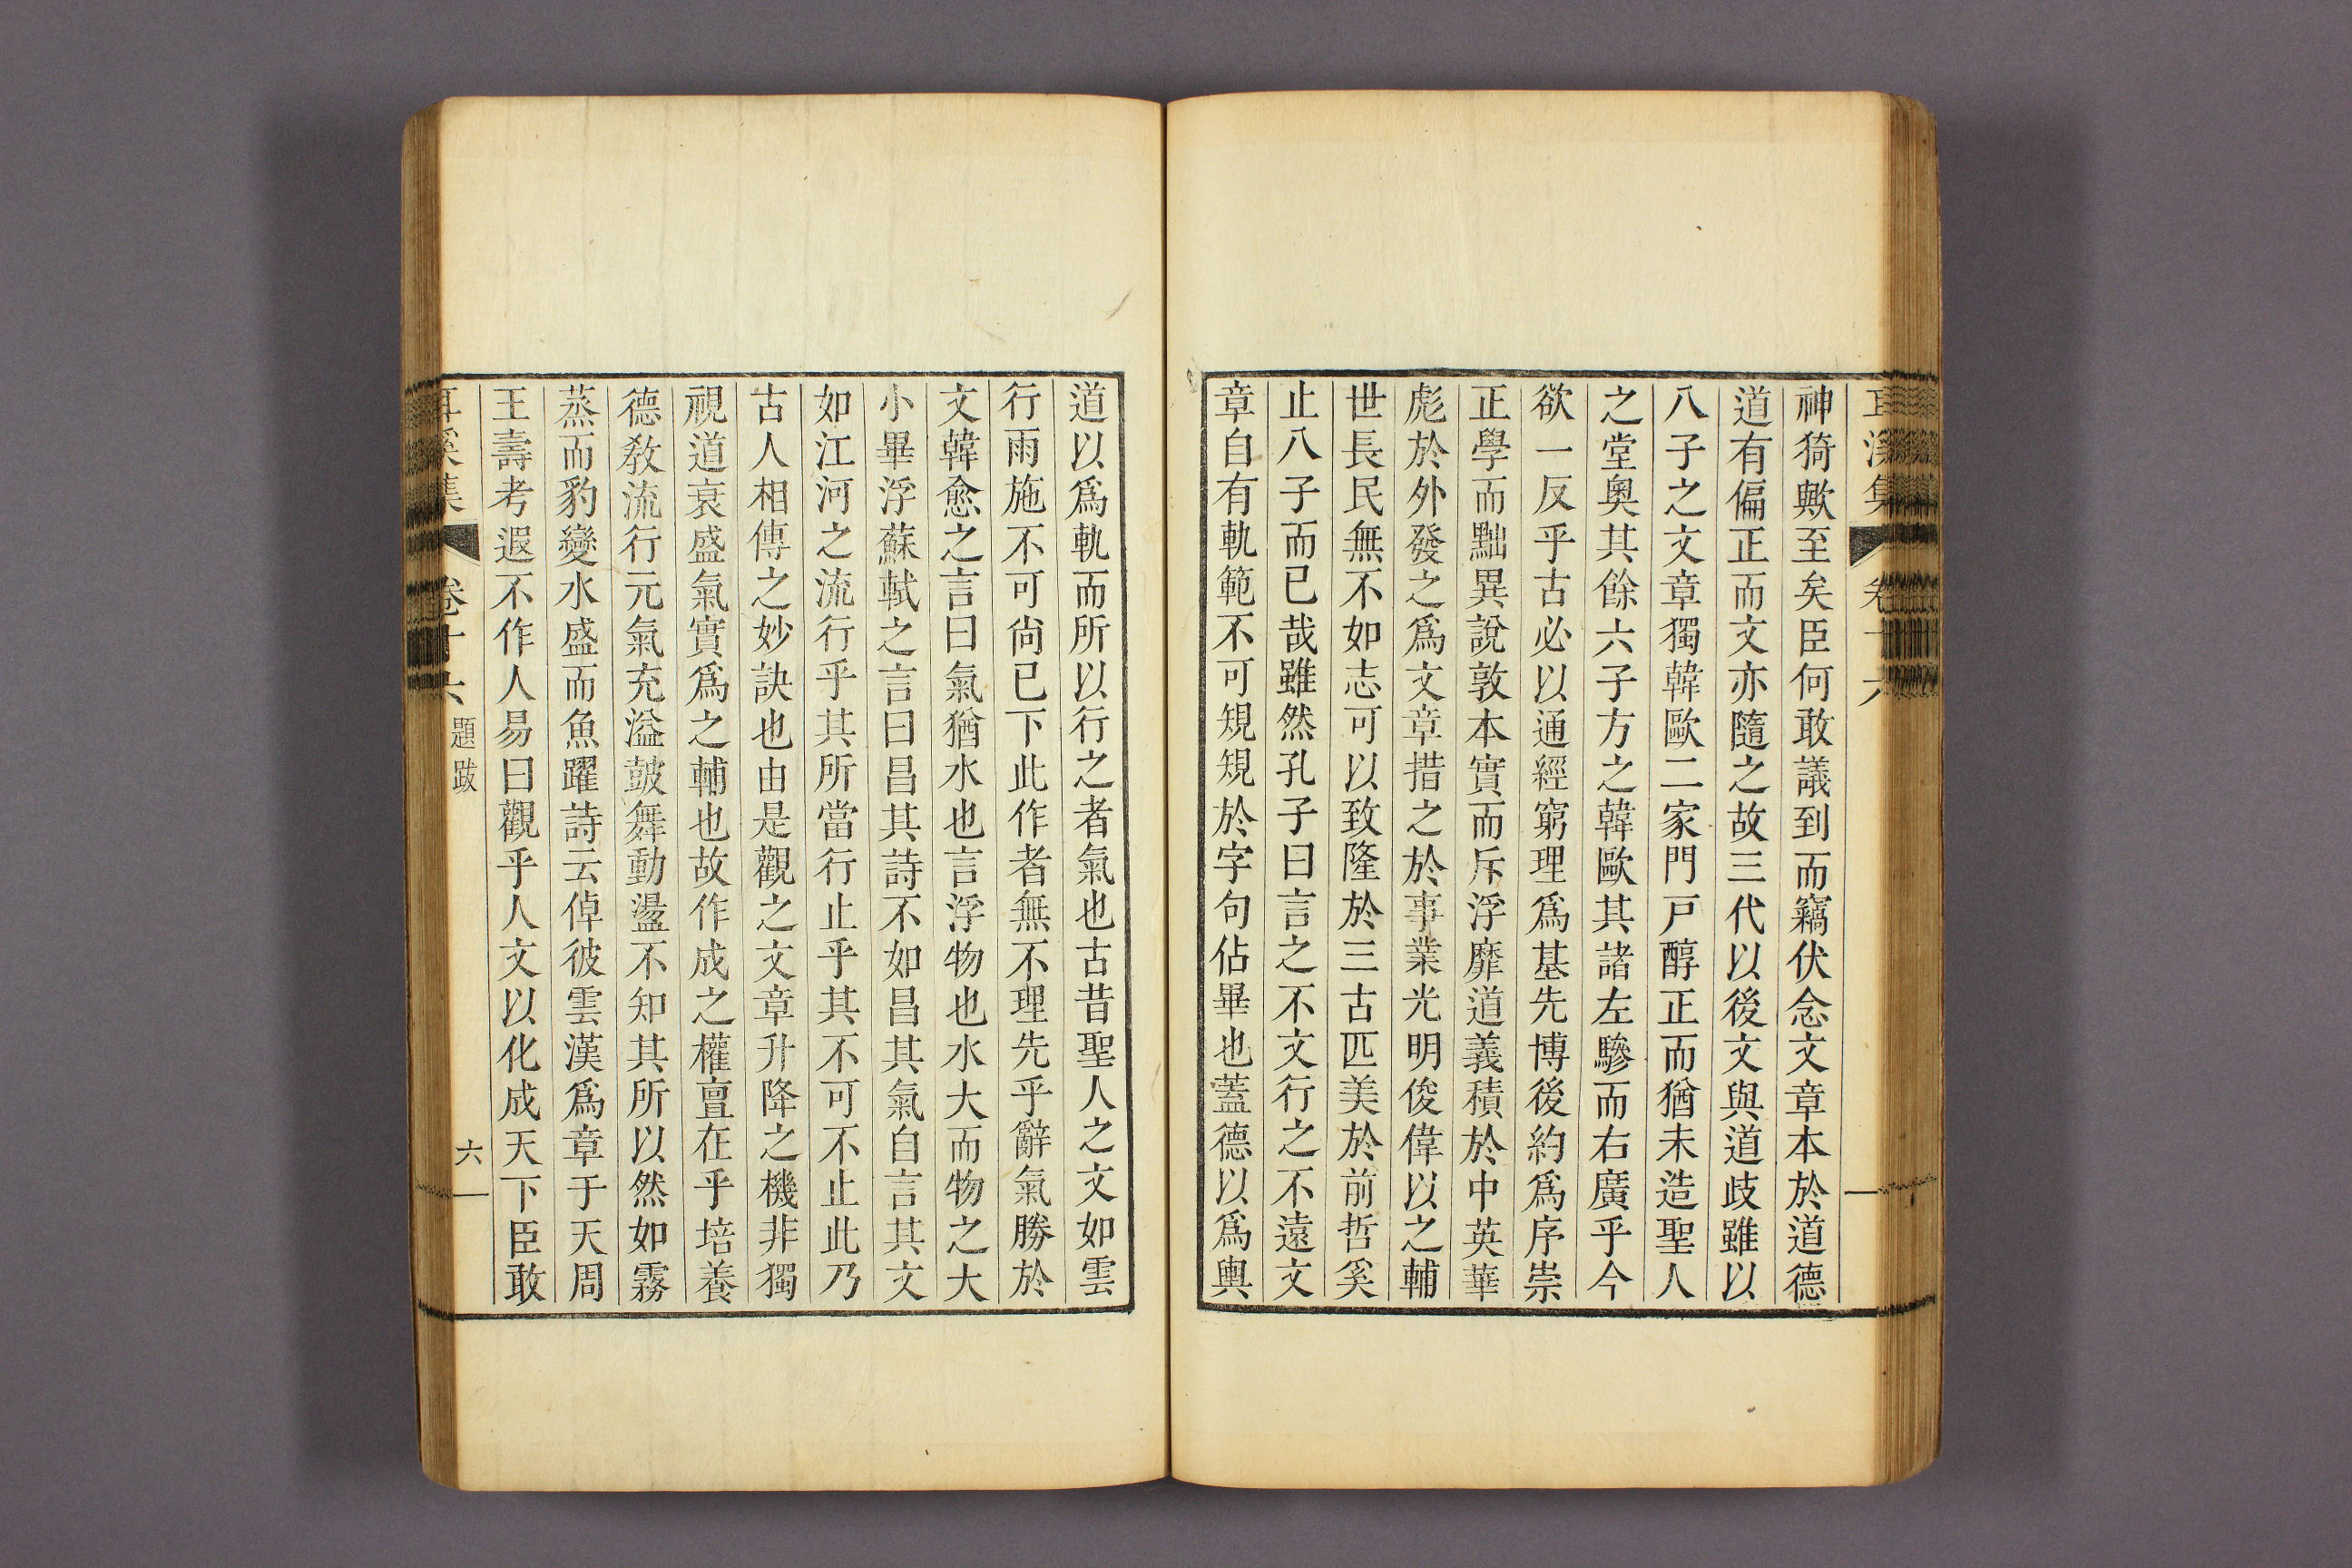 神猗歟至矣臣何敢議到而竊伏念文章本於道德
道有偏正而文亦隨之故三代以後文與道歧雖以
八子之文章獨韓歐二家門戸醇正而猶未造聖人
之堂奧其餘六子方之韓歐其諸左驂而右廣乎今
欲一反乎古必以通經窮理爲基先博後約爲序崇
正學而黜異說敦本實而斥浮靡道義積於中英華
彪於外發之爲文章措之於事業光明俊偉以之輔
世長民無不如志可以致隆於三古匹美於前哲奚
止八子而已哉雖然孔子曰言之不文行之不遠文
章自有軌範不可規規於字句佔畢也蓋德以爲輿
道以爲軌而所以行之者氣也古昔聖人之文如雲
行雨施不可尙已下此作者無不理先乎辭氣勝於
文韓愈之言曰氣猶水也言浮物也水大而物之大
小畢浮蘇軾之言曰昌其詩不如昌其氣自言其文
如江河之流行乎其所當行止乎其不可不止此乃
古人相傳之妙訣也由是觀之文章升降之機非獨
視道衰盛氣實爲之輔也故作成之權亶在乎培養
德敎流行元氣充溢鼓舞動盪不知其所以然如霧
蒸而豹變水盛而魚躍詩云倬彼雲漢爲章于天周
王壽考遐不作人易曰觀乎人文以化成天下臣敢
耳溪集 卷十六 題跋 六